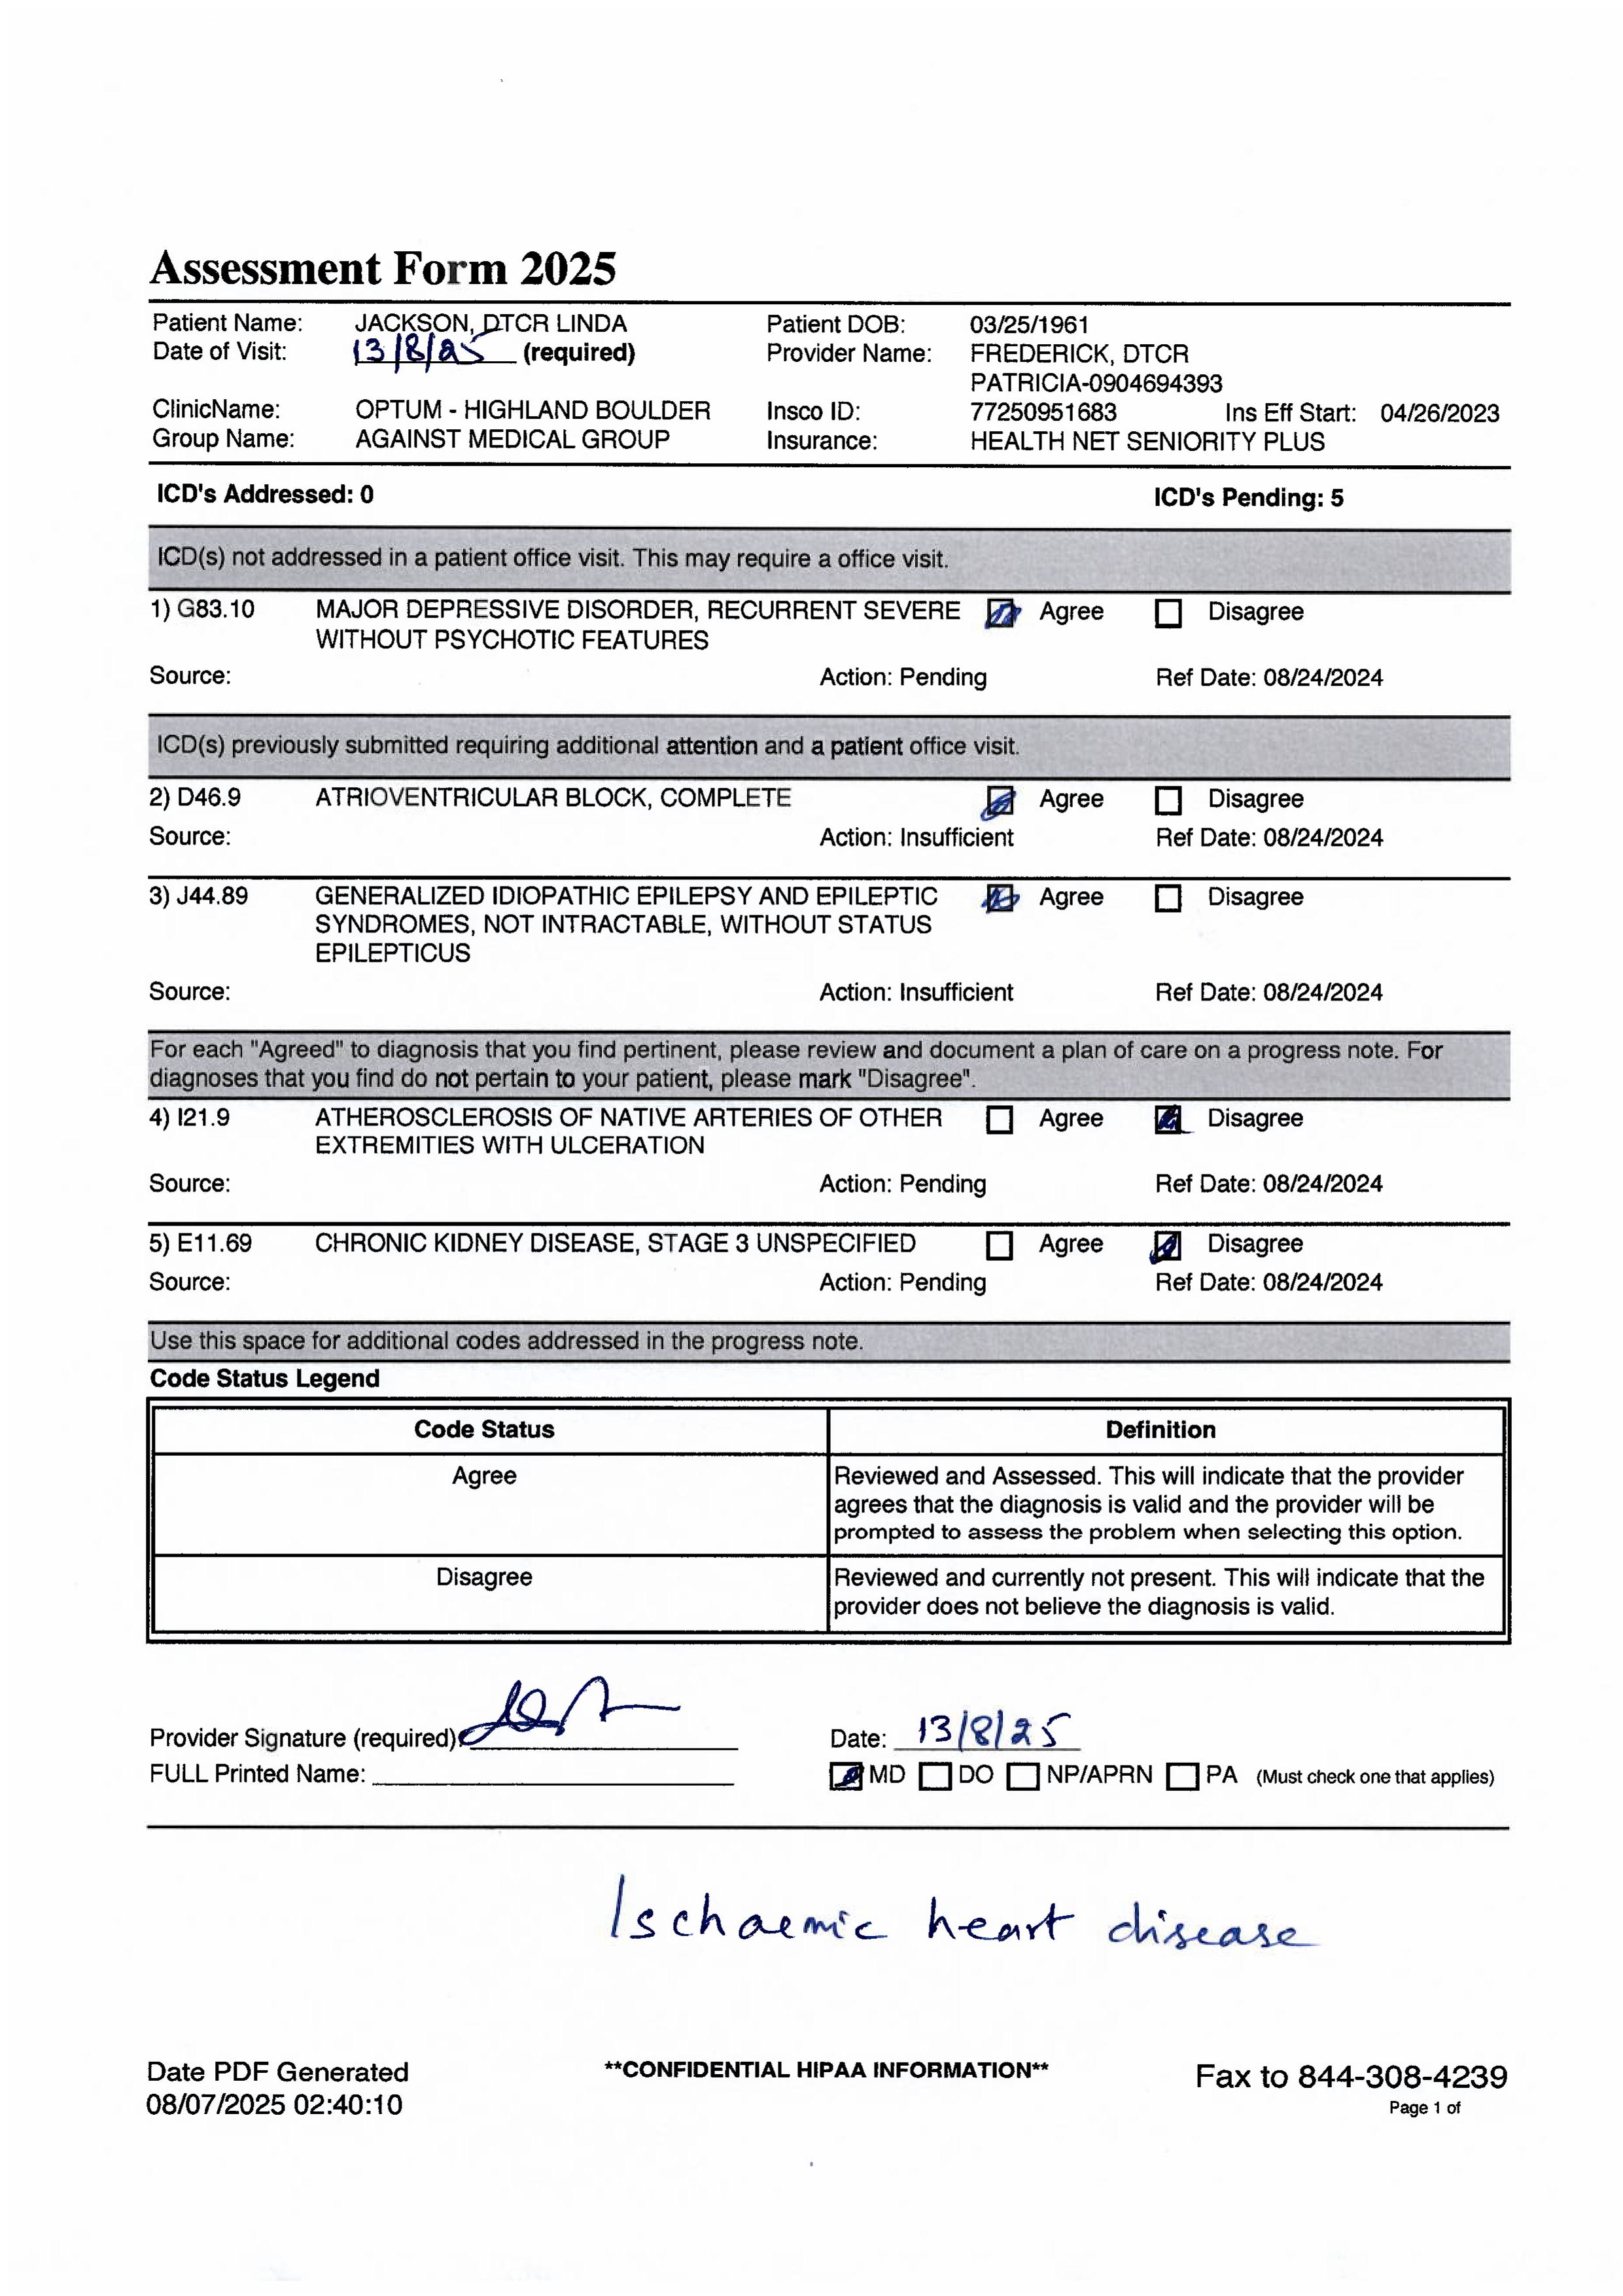 Assessment Form 2025
Patient Name: JACKSON, DTCR LINDA Patient DOB: 03/25/1961
Date of Visit: 13/8/25 (required) Provider Name: FREDERICK, DTCR
PATRICIA-0904694393
ClinicName: OPTUM - HIGHLAND BOULDER Insco ID: 77250951683 Ins Eff Start: 04/26/2023
Group Name: AGAINST MEDICAL GROUP Insurance: HEALTH NET SENIORITY PLUS
ICD's Addressed: 0 ICD's Pending: 5
ICD(s) not addressed in a patient office visit. This may require a office visit.
1) G83.10 MAJOR DEPRESSIVE DISORDER, RECURRENT SEVERE Agree Disagree
WITHOUT PSYCHOTIC FEATURES
Source: Action: Pending Ref Date: 08/24/2024
ICD(s) previously submitted requiring additional attention and a patient office visit.
2) D46.9 ATRIOVENTRICULAR BLOCK, COMPLETE Agree Disagree
Source: Action: Insufficient Ref Date: 08/24/2024
3) J44.89 GENERALIZED IDIOPATHIC EPILEPSY AND EPILEPTIC Agree Disagree
SYNDROMES, NOT INTRACTABLE, WITHOUT STATUS
EPILEPTICUS
Source: Action: Insufficient Ref Date: 08/24/2024
For each "Agreed" to diagnosis that you find pertinent, please review and document a plan of care on a progress note. For
diagnoses that you find do not pertain to your patient, please mark "Disagree".
4) I21.9 ATHEROSCLEROSIS OF NATIVE ARTERIES OF OTHER Agree Disagree
EXTREMITIES WITH ULCERATION
Source: Action: Pending Ref Date: 08/24/2024
5) E11.69 CHRONIC KIDNEY DISEASE, STAGE 3 UNSPECIFIED Agree Disagree
Source: Action: Pending Ref Date: 08/24/2024
Use this space for additional codes addressed in the progress note.
Code Status Legend
Code Status Definition
Agree Reviewed and Assessed. This will indicate that the provider
agrees that the diagnosis is valid and the provider will be
prompted to assess the problem when selecting this option.
Disagree Reviewed and currently not present. This will indicate that the
provider does not believe the diagnosis is valid.
Provider Signature (required): Date: 13/8/25
FULL Printed Name: MD DO NP/APRN PA (Must check one that applies)
Ischaemic heart disease
Date PDF Generated **CONFIDENTIAL HIPAA INFORMATION** Fax to 844-308-4239
08/07/2025 02:40:10 Page 1 of